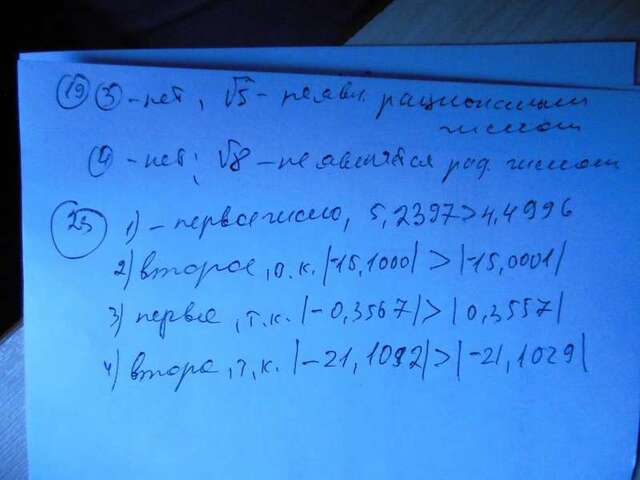 19 3 - нет, √5 - не явл. рациональным
числом
4 - нет; √8 - не является рац. числом
25 1) - первое число, 5,2397>4,4996
2) второе, т.к. |-15,1000| > |-15,0001|
3) первое, т.к. |-0,3567| > |0,3557|
4) второе, т.к. |-21,1092| > |-21,1029|